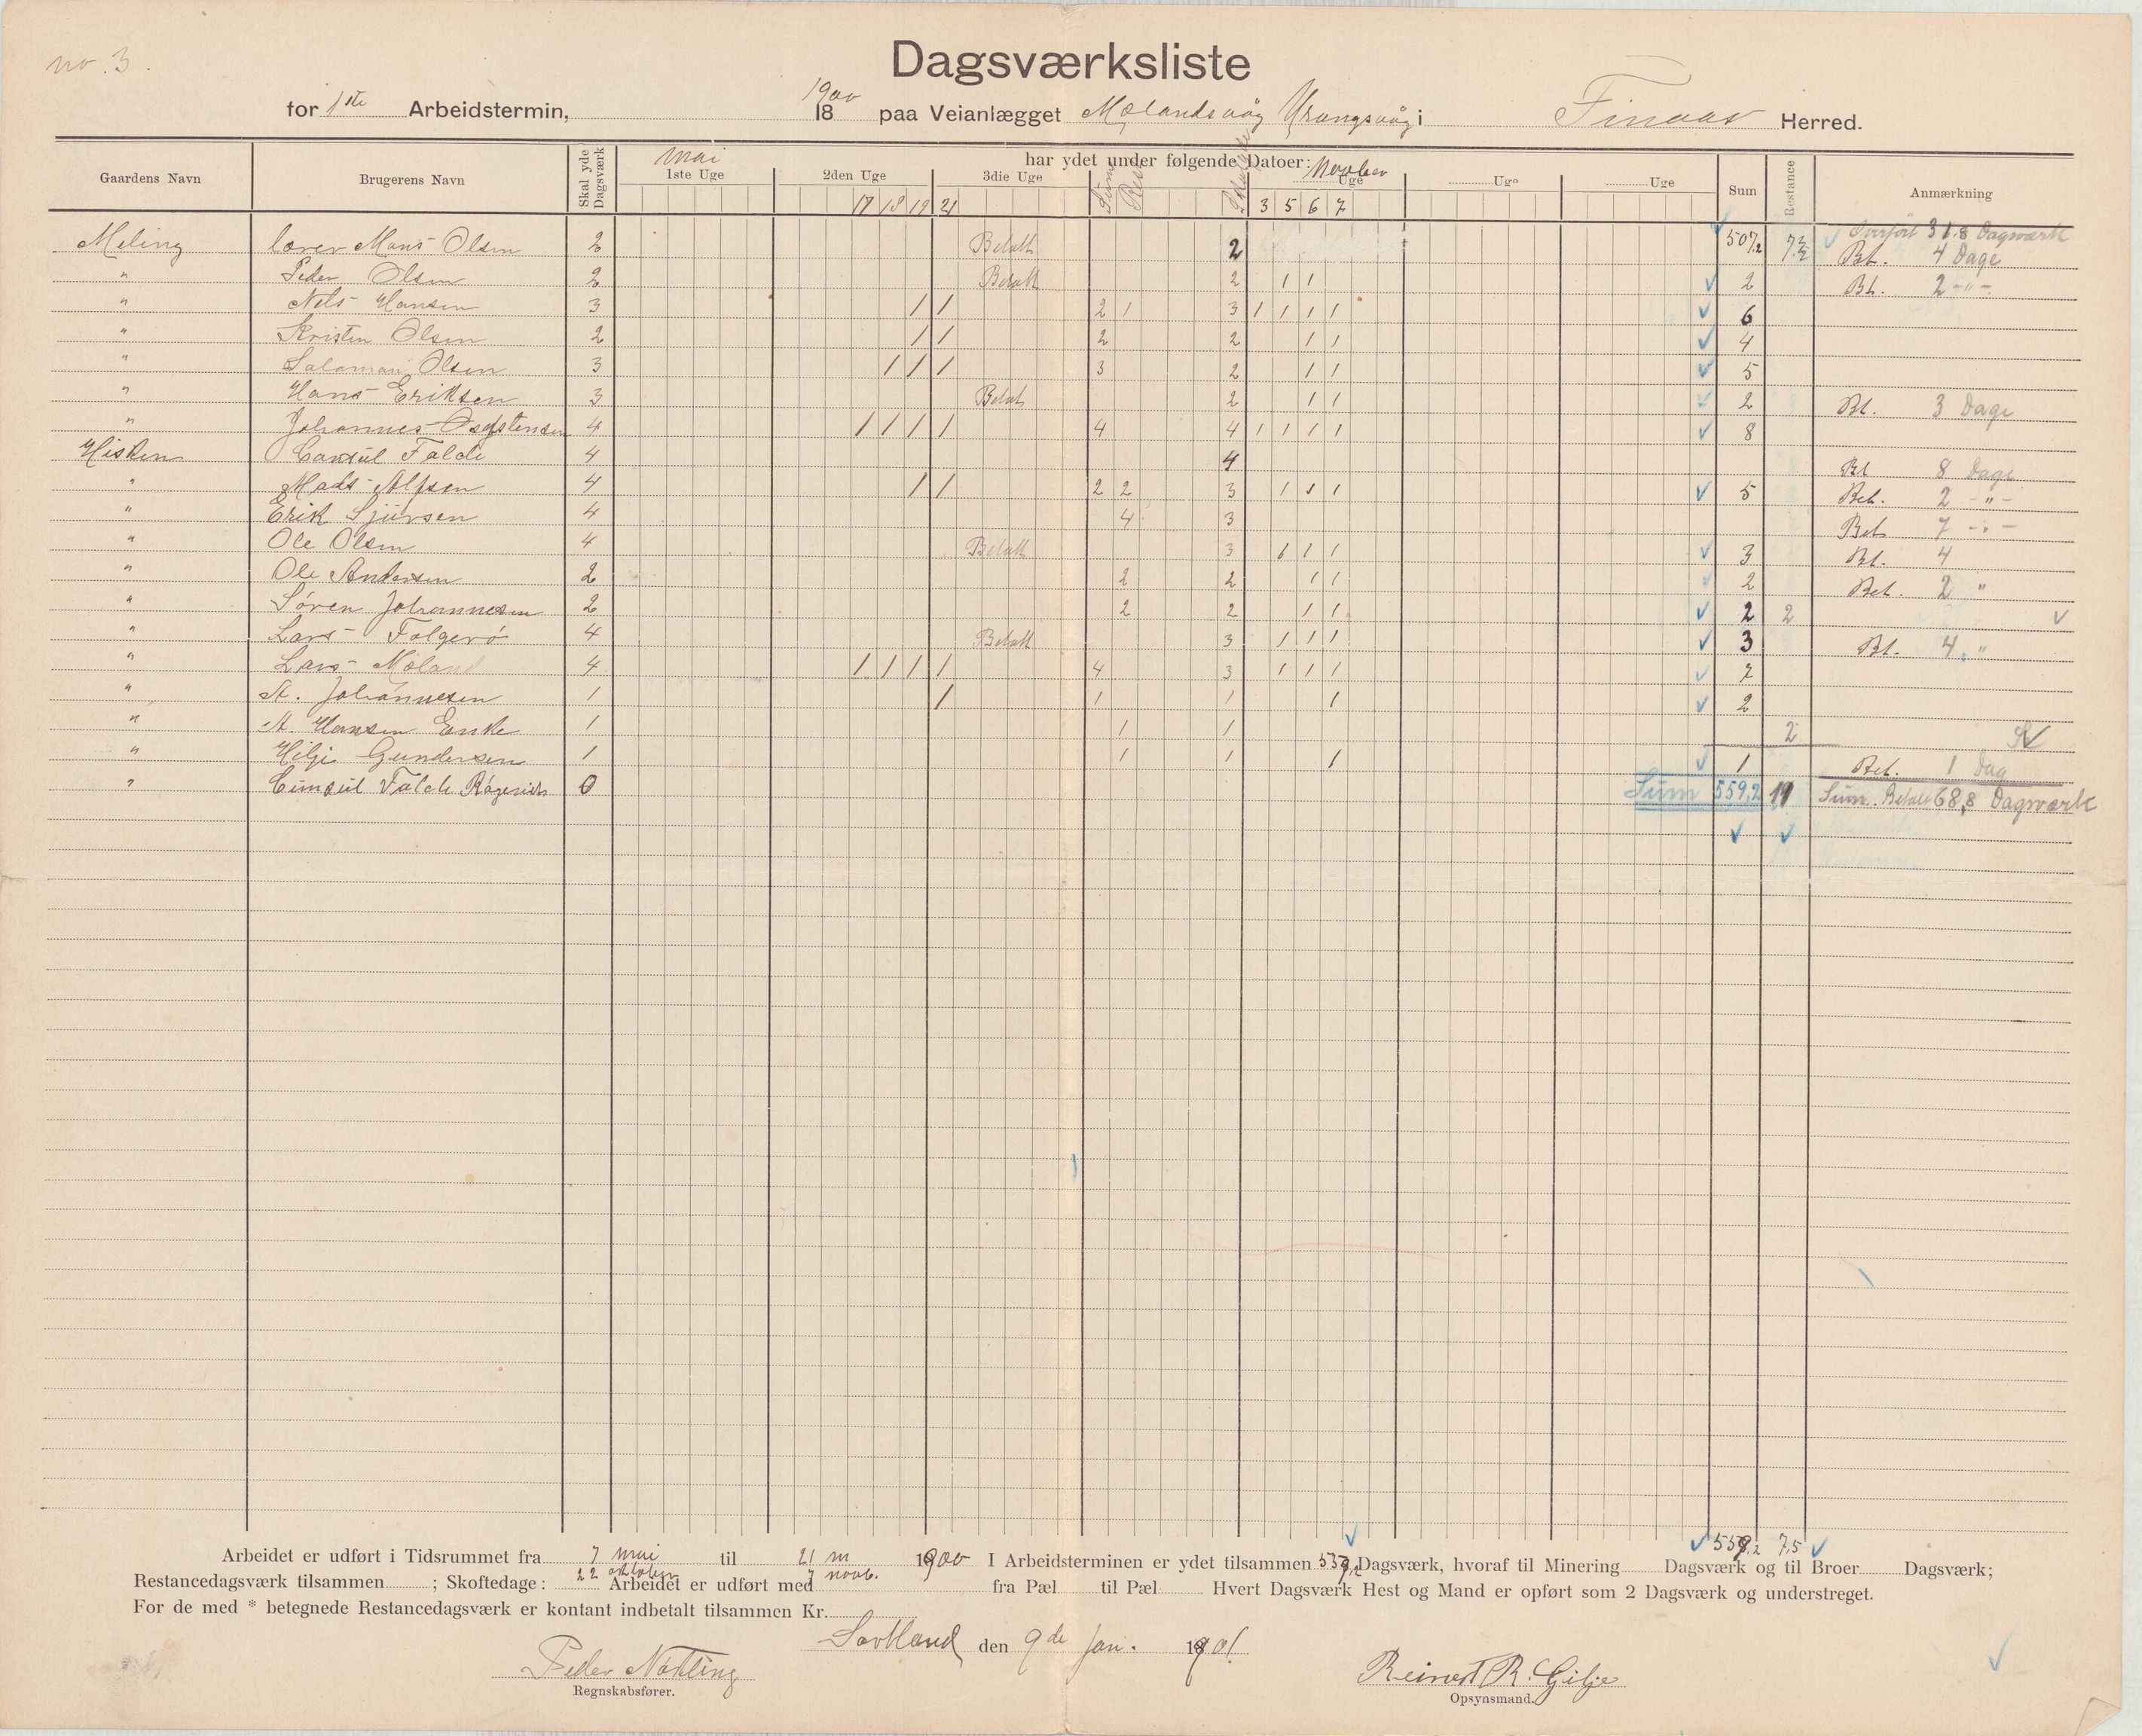 no. 3.
Dagsværksliste
for 1ste Arbeidstermin, 1900 18 paa Veianlægget Mælandsvåg Urangsvåg i Finaas Herred.
Gaardens Navn Brugerens Navn Skal yde Dagsværk har ydet under følgende Datoer: Sum Restance Anmærkning
Mai 1ste Uge 2den Uge 3die Uge Sum Rest Uge Uge Uge
17 18 19 21 3 5 6 7
Overført 31.8 Dagværk
Meling lærer Mons Olsen 2 Betalt 2 507,2 7½ Bet. 4 Dage
" Peder Olsen 2 Betalt 2 1 1 2 Bt. 2 -"-
" Nels Hansen 3 / / 2 1 3 1 1 1 1 6
" Kristen Olsen 2 / / 2 2 1 1 4
" Salamon Olsen 3 / / / 3 2 1 1 5
" Hans Eriksen 3 Betalt 2 1 1 2 Bt. 3 Dage
" Johannes 4 / / / / 4 4 1 1 1 1 8
Hisken Consul Falde 4 4 Bt 8 Dage
" Mads Alfsen 4 / / 2 2 3 1 1 1 5 Bet. 2 -"-
" Erik Sjursen 4 4 3 Bet. 7 -"-
" Ole Olsen 4 Betalt 3 1 1 1 3 Bt. 4
" Ole Andersen 2 2 2 1 1 2 Bet. 2 "
" Søren Johannesen 2 2 2 1 1 2 2
" Lars Folgerø 4 Betalt 3 1 1 1 3 Bt. 4 "
" Lars Mæland 4 / / / / 4 3 1 1 1 7
" A. Johannesen 1 / 1 1 1 2
" A. Hansen Enke 1 1 1 2
" Hilje Gundersen 1 1 1 1 1 Bet. 1 Dag
" Cunsul Falde 0 Sum 559,2 19 Sum Betalt 68,8 Dagværk
559,2 7,5
Arbeidet er udført i Tidsrummet fra 7 mai til 21 m 1900 I Arbeidsterminen er ydet tilsammen 559,2 Dagsværk, hvoraf til Minering Dagsværk og til Broer Dagsværk;
22 oktober 7 novb.
Restancedagsværk tilsammen ; Skoftedage: Arbeidet er udført med fra Pæl til Pæl Hvert Dagsværk Hest og Mand er opført som 2 Dagsværk og understreget.
For de med * betegnede Restancedagsværk er kontant indbetalt tilsammen Kr.
Sortland den 9de Jan. 1901
Peder Nøkling Reinert R. Gilje
Regnskabsfører. Opsynsmand.